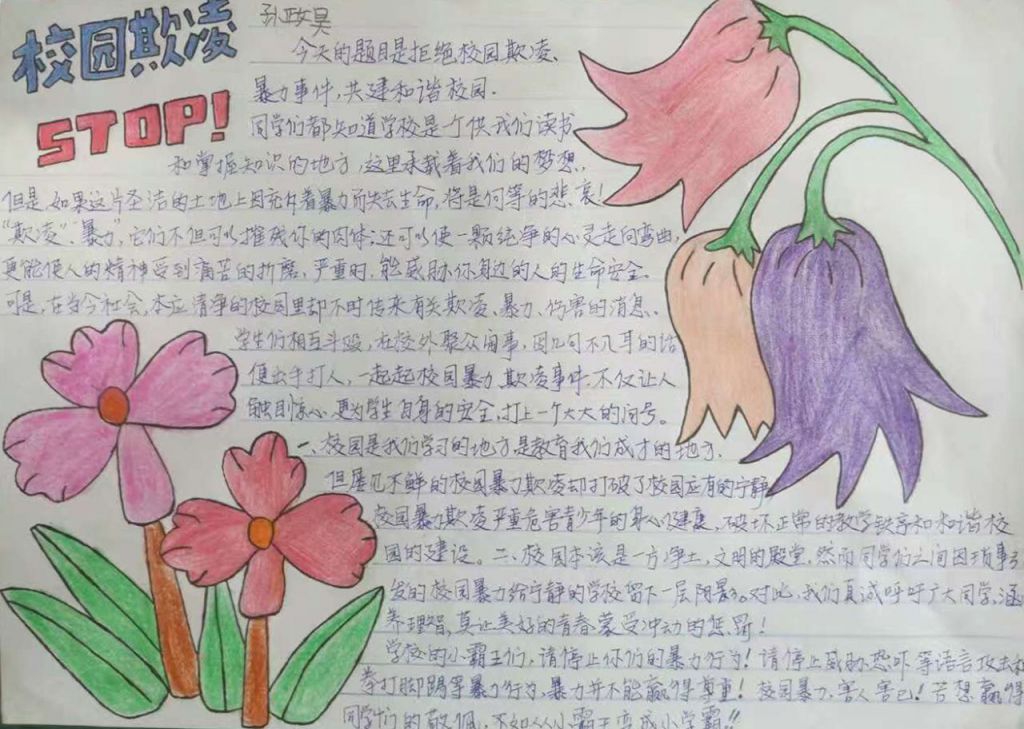 校园欺凌
STOP!
孙政昊
今天的题目是拒绝校园欺凌、
暴力事件,共建和谐校园.
同学们都知道学校是个供我们读书
和掌握知识的地方,这里承载着我们的梦想..
但是如果这片圣洁的土地上因充斥着暴力而失去生命,将是何等的悲哀!
"欺凌"、暴力",它们不但可以摧残你的肉体;还可以使一颗纯净的心灵走向弯曲,
更能使人的精神受到痛苦的折磨,严重时,能威胁你身边的人的生命安全。
可是,在当今社会,本应清净的校园里却不时传来有关欺凌、暴力、伤害的消息..
学生们相互斗殴,在校外聚众闹事,因几句不入耳的话
便出手打人,一起起校园暴力欺凌事件,不仅让人
触目惊心,更为学生自身的安全,打上一个大大的问号。
一、校园是我们学习的地方,是教育我们成才的地方.
但屡见不鲜的校园暴力欺凌却打破了校园应有的宁静
校园暴力欺凌严重危害青少年的身心健康,破坏正常的教学秩序和和谐校
园的建设。二、校园本该是一方净土,文明的殿堂,然而同学们之间因琐事引
发的校园暴力给宁静的学校留下一层阴影。对此,我们真诚呼吁广大同学,涵
养理智,莫让美好的青春蒙受冲动的惩罚!
学校的小霸王们,请停止你们的暴力行为!请停止威胁恐吓等语言攻击和
拳打脚踢等暴力行为,暴力并不能赢得尊重!校园暴力,害人害己!若想赢得
同学们的敬佩,不如从小霸王变成小学霸!!